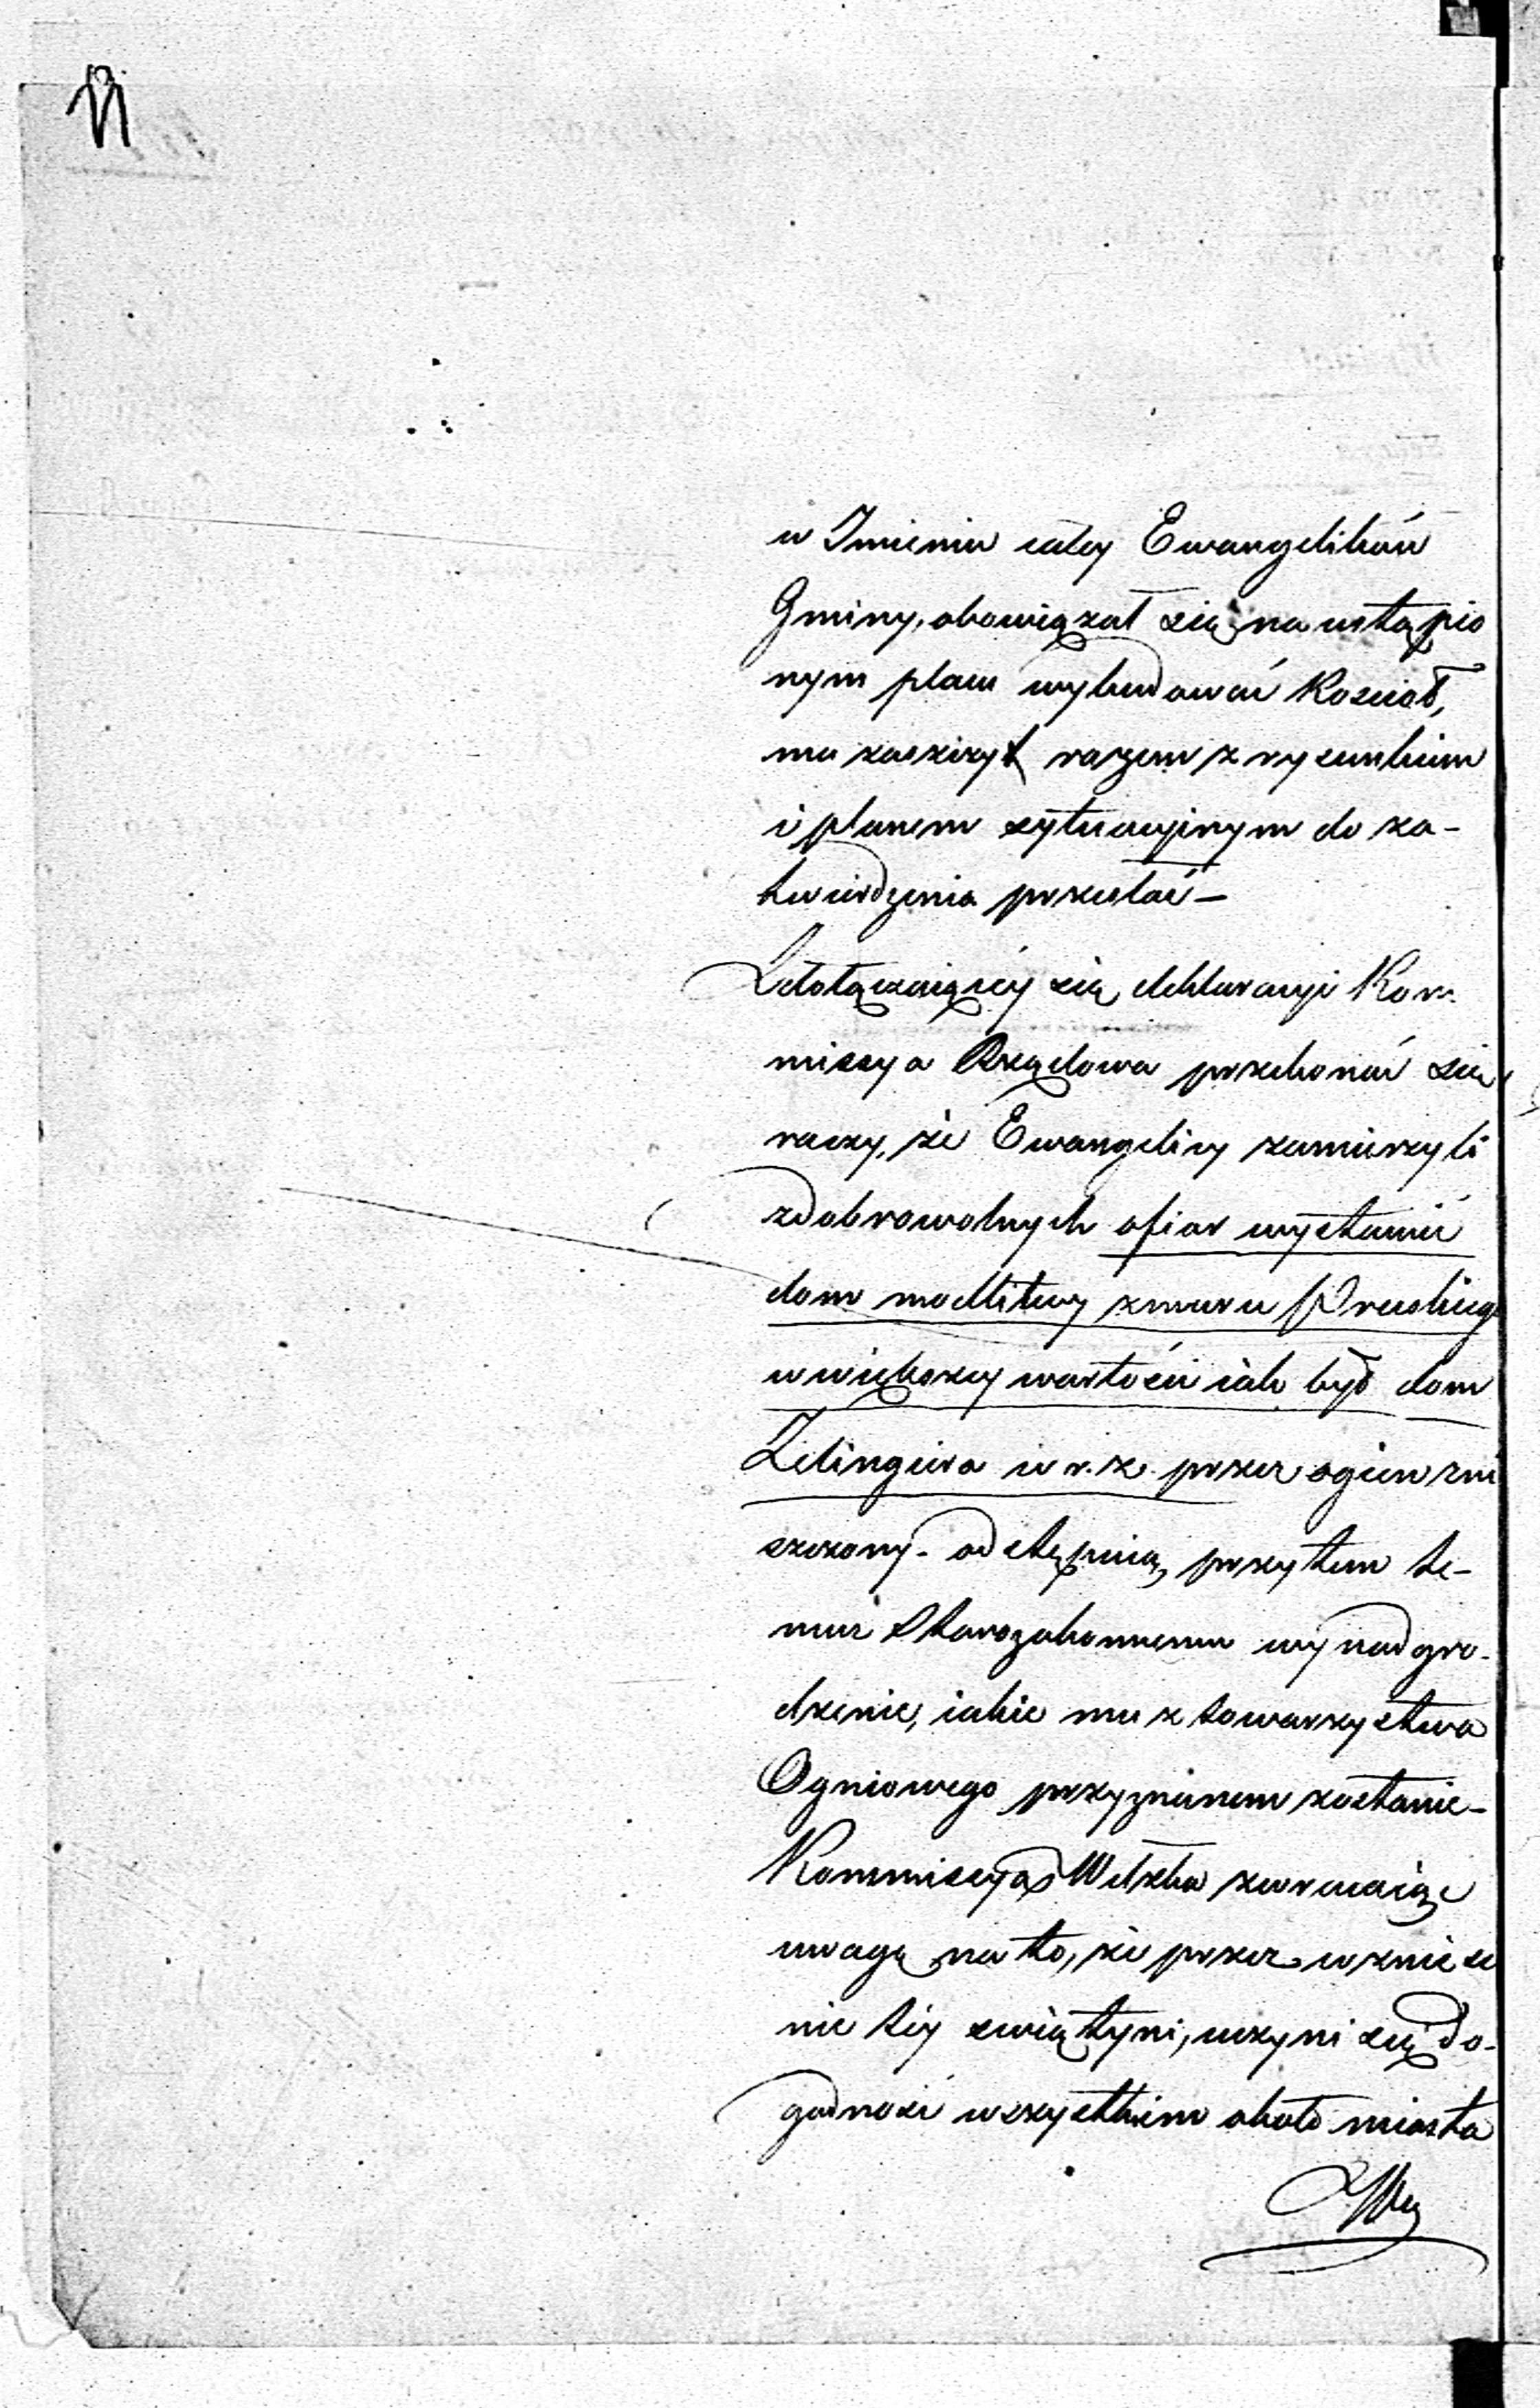 w Imieniu całey Ewangelików
Gminy, obowiązał się na ustąpio
nym placu wybudować Kosciół,
ma zaszczyt razem z rysunkiem
i planem sytuacyjnym do za-
twierdzenia przesłać –
Z dołączaiącéy się deklaracyi Kom-
missya Rządowa przekonać się
raczy, że Ewangelicy zamierzyli
z dobrowolnych ofiar wystawić
dom modlitwy z muru Pruskiego
w większey wartości iak był dom
Zelingera w r. z. przez ogien zni
szczony. odstępuią przytem te-
muż Starozakonnemu wynadgro-
dzenie, iakie mu z towarzystwa
Ogniowego przyznanem zostanie –
Kommissya Wdzka zwracaiąc
uwagę na to, że przez wzniese
nie téy swiątyni, uczyni się do-
godność wszystkim około miasta